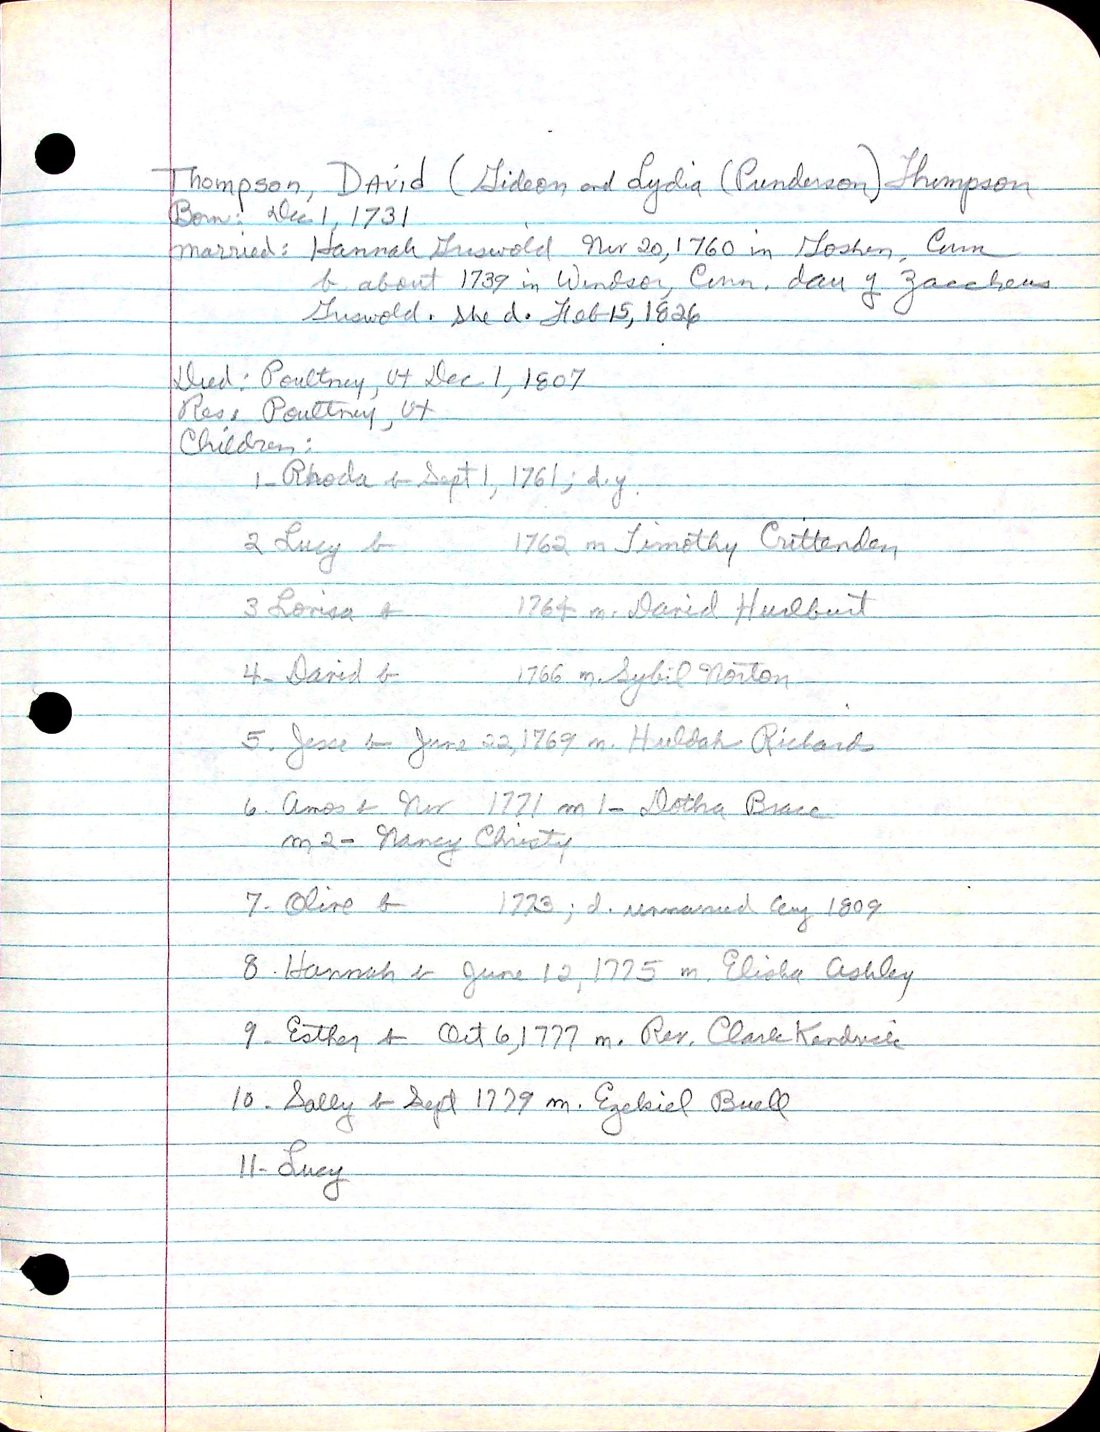 Thompson, David (Gideon and Lydia (Punderson) Thompson
Born: Dec 1, 1731
Married: Hannah Griswold Nov 20, 1760 in Goshen, Conn
b. about 1739 in Windsor, Conn. dau of Zaccheus
Griswold. She d. Feb 15, 1826
Died: Poultney, Vt Dec 1, 1807
Res: Poultney, Vt
Children:
1- Rhoda b Sept 1, 1761; d.y.
2 Lucy b 1762 m Timothy Crittenden
3 Lovisa b 1764 m. David Hurlburt
4- David b 1766 m. Sybil Norton
5. Jesse b June 22, 1769 m. Huldah Richards
6. Amos b Nov 1771 m 1- Dotha Brace
m 2- Nancy Christy
7- Olive b 1773; d. unmarried Aug 1809
8. Hannah b June 12, 1775 m. Elisha Ashley
9- Esther b Oct 6, 1777 m. Rev. Clark Kendrick
10. Sally b Sept 1779 m. Ezekiel Buell
11- Lucy